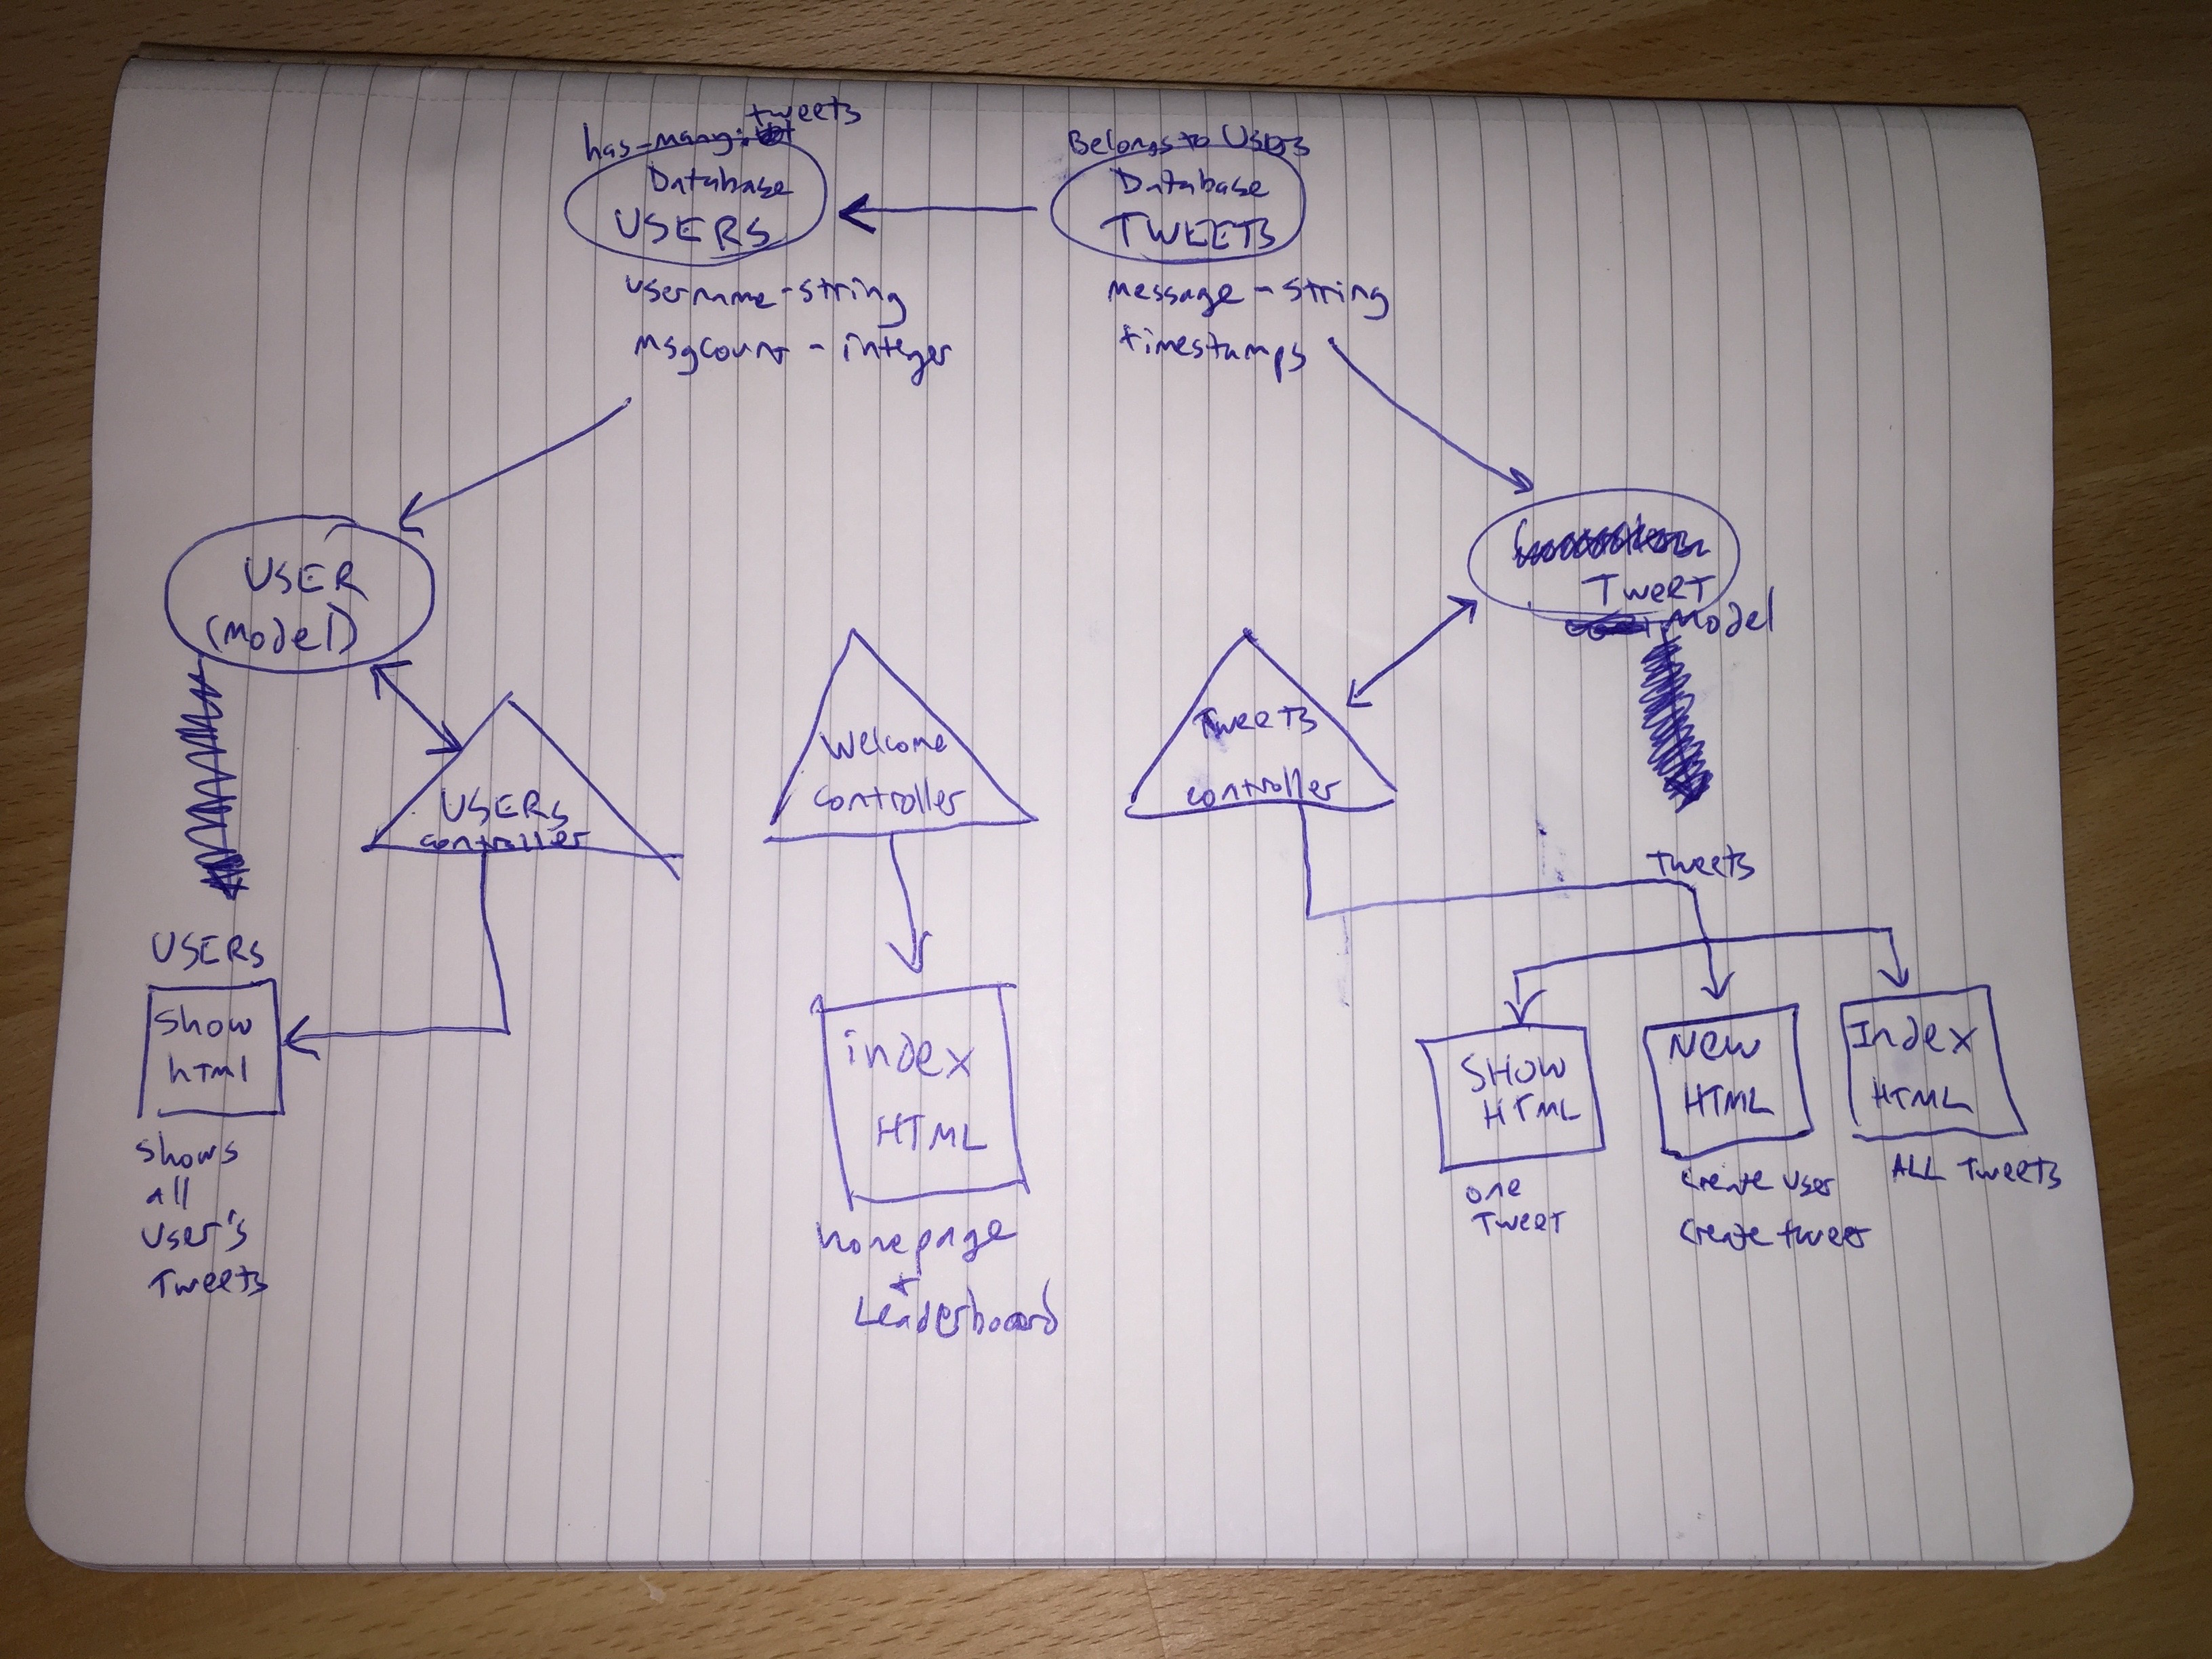 tweets
has-many:
Database
USERS
username - string
msgcount - integer
Belongs to Users
Database
TWEETS
message - string
timestamps
USER
(model)
USERS
controller
Welcome
controller
Tweets
controller
Tweet
Model
USERS
show
html
shows
all
User's
Tweets
index
HTML
homepage
+
Leaderboard
Tweets
SHOW
HTML
one
Tweet
New
HTML
create user
create tweet
Index
HTML
ALL Tweets